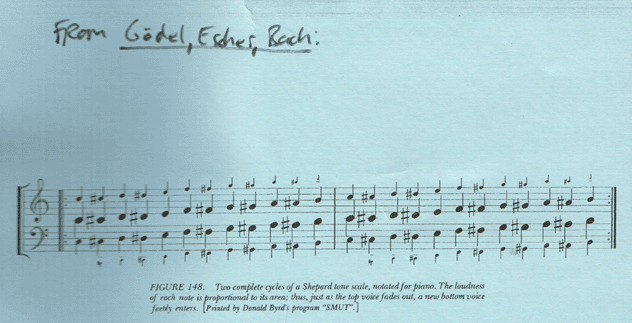 From Gödel, Escher, Bach:
FIGURE 148. Two complete cycles of a Shepard tone scale, notated for piano. The loudness
of each note is proportional to its area; thus, just as the top voice fades out, a new bottom voice
feebly enters. [Printed by Donald Byrd's program "SMUT".]